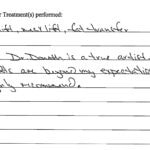 Treatment(s) performed:
lift, neck lift, fat transfer
Dr. is a true artist.
are beyond my expectation
recommend.